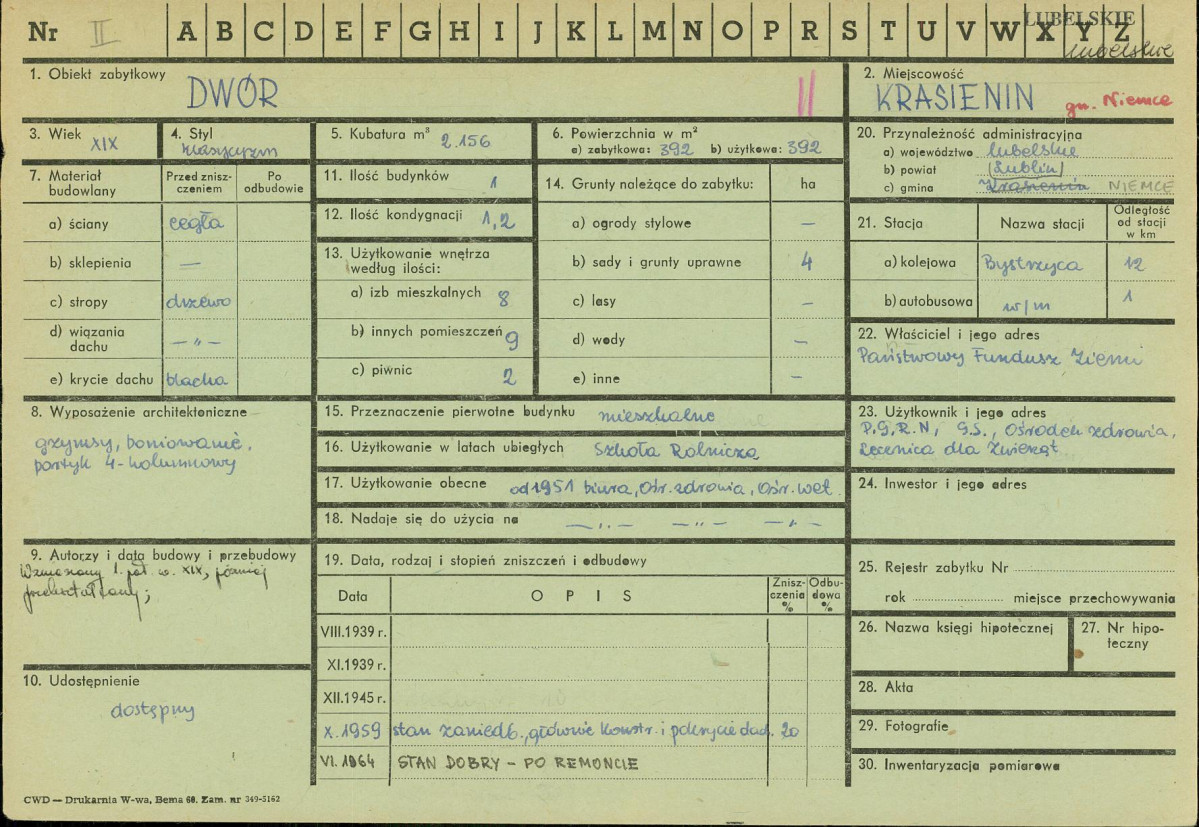 Nr II A B C D E F G H I J K L M N O P R S T U V W X Y Z
LUBELSKIE
lubelskie
1. Obiekt zabytkowy
DWÓR
II
2. Miejscowość
KRASIENIN gm. Niemce
3. Wiek
XIX
4. Styl
klasycyzm
5. Kubatura m³
2.156
6. Powierzchnia w m²
a) zabytkowa: 392 b) użytkowa: 392
20. Przynależność administracyjna
a) województwo lubelskie
b) powiat (Lublin)
c) gmina Krasienin NIEMCE
7. Materiał budowlany
Przed zniszczeniem
Po odbudowie
a) ściany cegła
b) sklepienia —
c) stropy drzewo
d) wiązania dachu — „ —
e) krycie dachu blacha
11. Ilość budynków 1
12. Ilość kondygnacji 1,2
13. Użytkowanie wnętrza
według ilości:
a) izb mieszkalnych 8
b) innych pomieszczeń 9
c) piwnic 2
14. Grunty należące do zabytku: ha
a) ogrody stylowe —
b) sady i grunty uprawne 4
c) lasy —
d) wody —
e) inne —
21. Stacja
Nazwa stacji
Odległość od stacji w km
a) kolejowa Bystrzyca 12
b) autobusowa w/m 1
22. Właściciel i jego adres
Państwowy Fundusz Ziemi
8. Wyposażenie architektoniczne
gzymsy, boniowanie,
portyk 4-kolumnowy
15. Przeznaczenie pierwotne budynku mieszkalne
16. Użytkowanie w latach ubiegłych Szkoła Rolnicza
17. Użytkowanie obecne od 1951 biura, Ośr. zdrowia, Ośr. wet.
18. Nadaje się do użycia na — „ — — „ — — „ —
23. Użytkownik i jego adres
P.G.R.N, G.S., Ośrodek zdrowia,
Lecznica dla Zwierząt
24. Inwestor i jego adres
9. Autorzy i data budowy i przebudowy
Wzniesiony 1. poł. w. XIX, później
przekształcony;
10. Udostępnienie
dostępny
19. Data, rodzaj i stopień zniszczeń i odbudowy
Data
OPIS
Zniszczenia %
Odbudowa %
VIII.1939 r.
XI.1939 r.
XII.1945 r.
X. 1959 stan zaniedb., głównie konstr. i pokrycie dach. 20
VI. 1964 STAN DOBRY – PO REMONCIE
25. Rejestr zabytku Nr
rok miejsce przechowywania
26. Nazwa księgi hipotecznej
27. Nr hipoteczny
28. Akta
29. Fotografie
30. Inwentaryzacja pomiarowa
CWD — Drukarnia W-wa, Bema 60. Zam. nr 349-5162